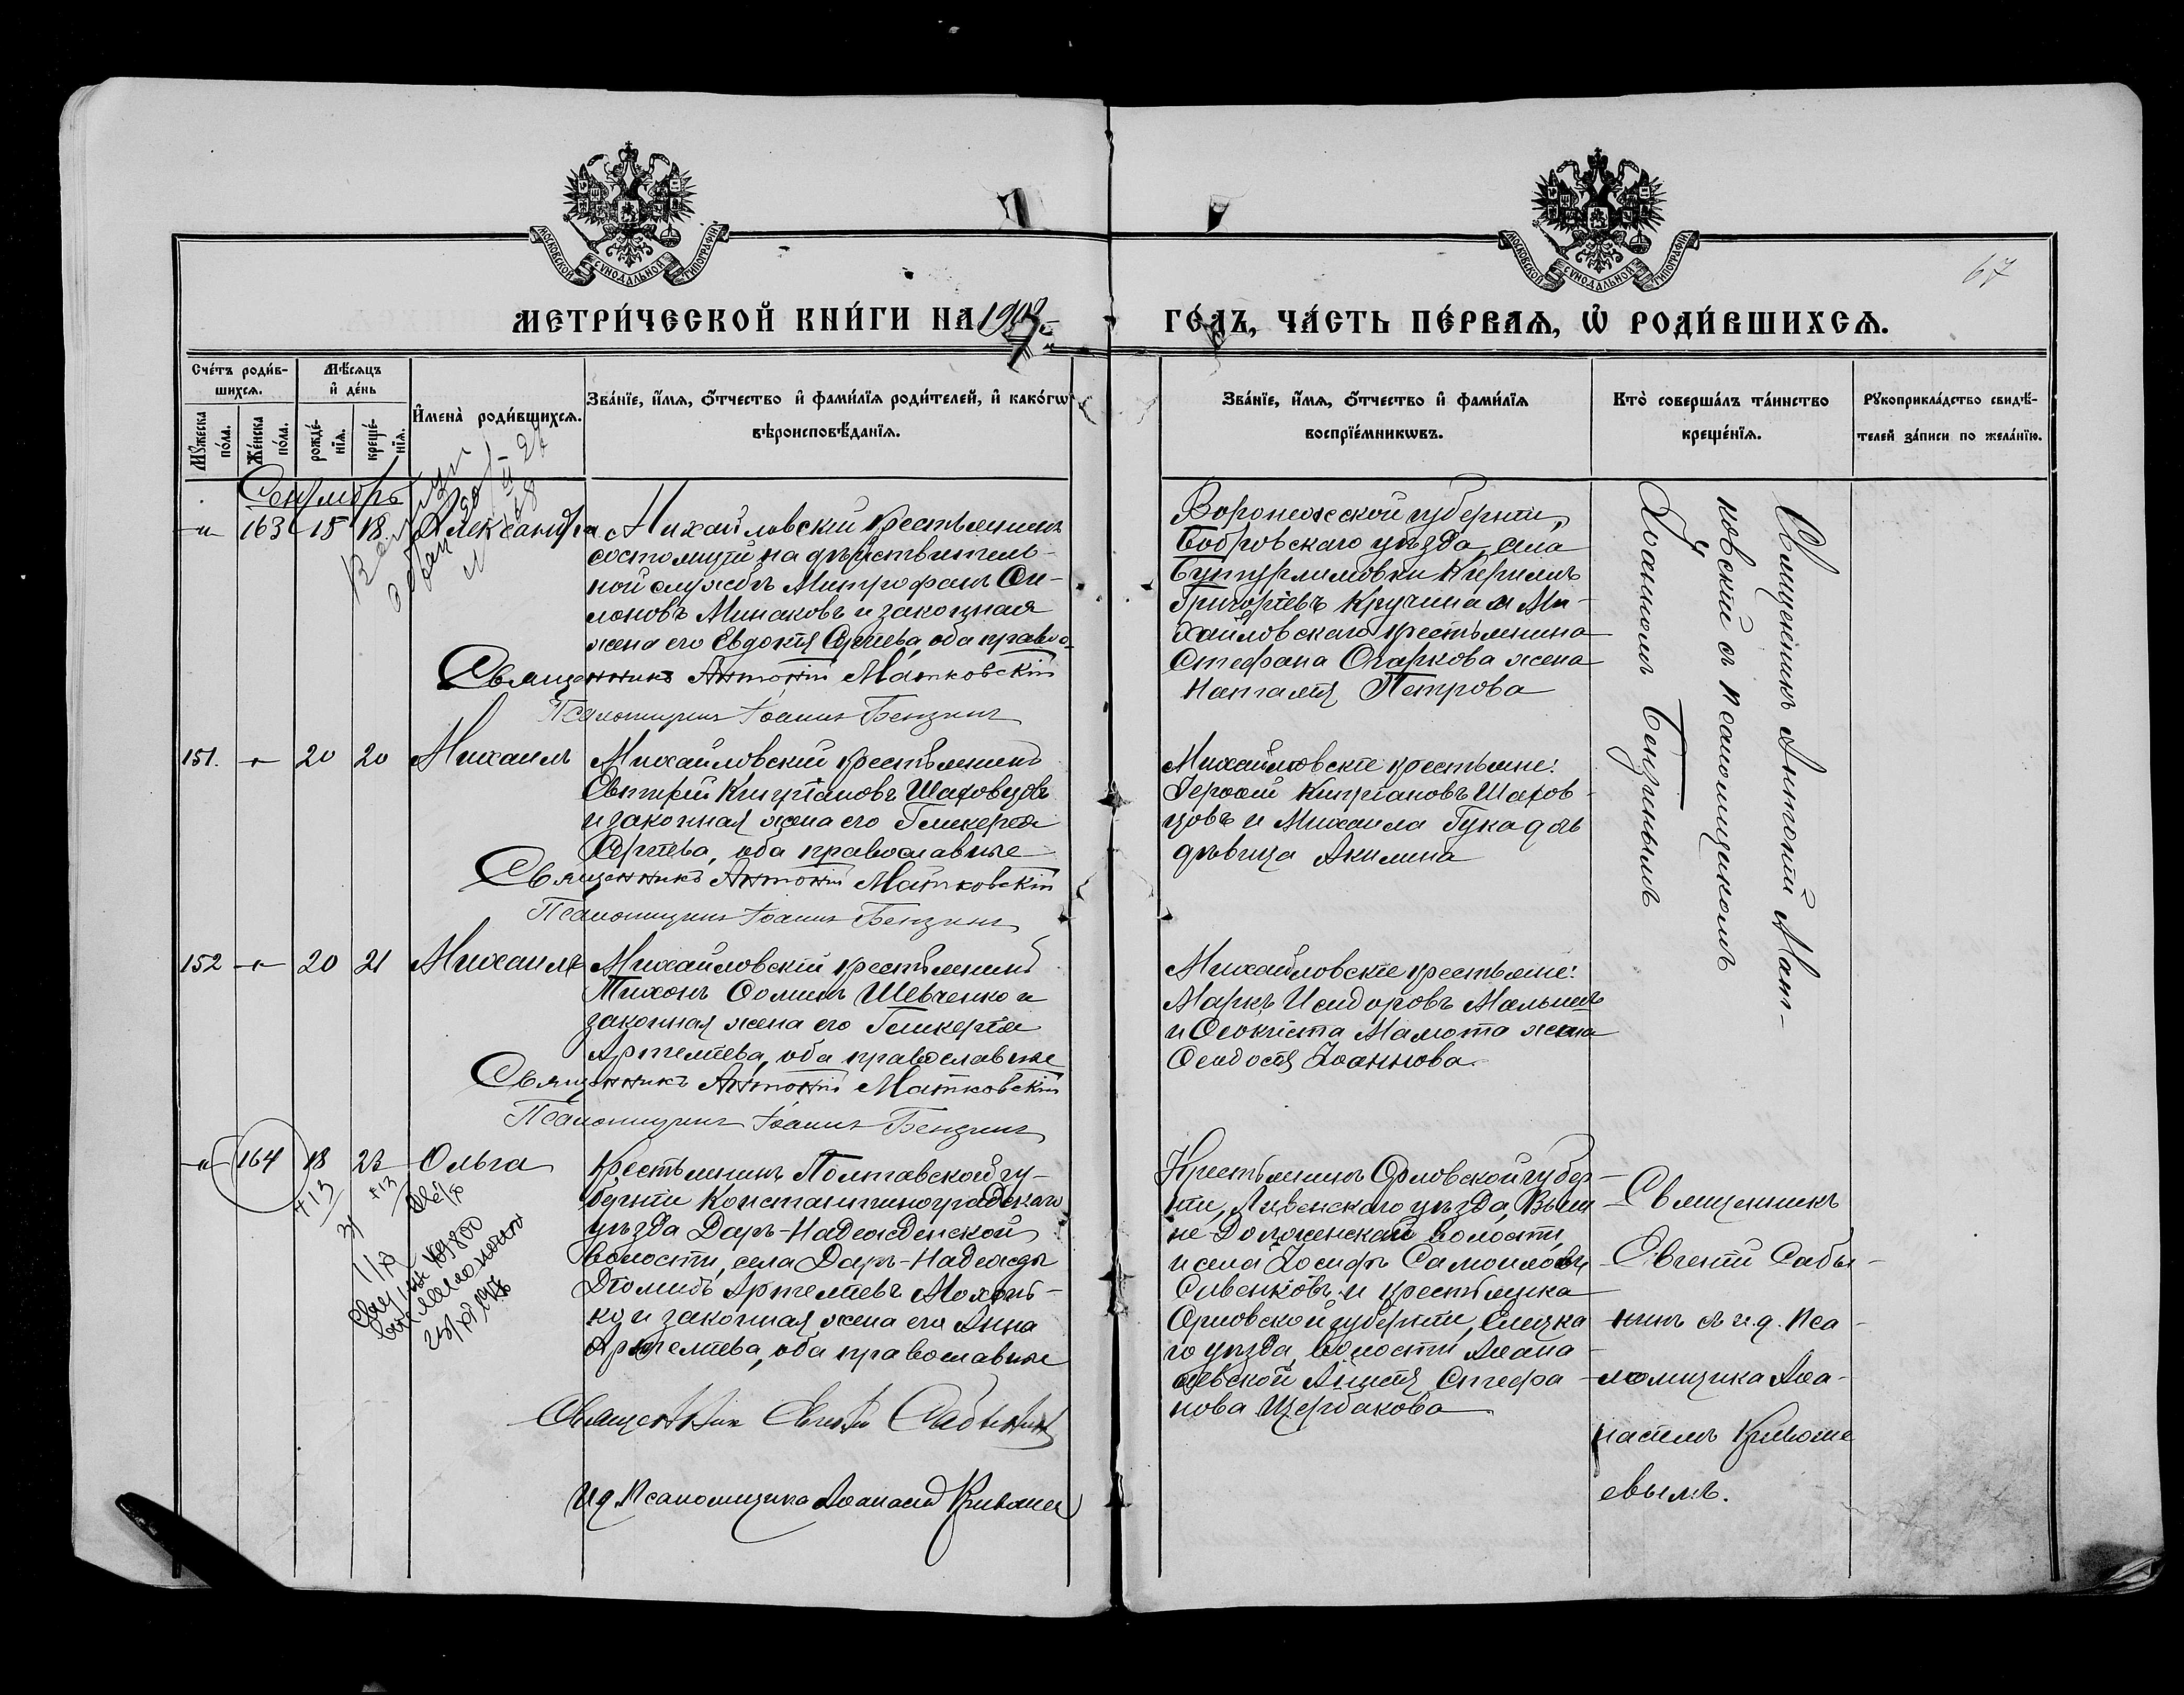 МОСКОВСКОЙ СѴНОДАЛЬНОЙ ТИПОГРАФІИ
МОСКОВСКОЙ СѴНОДАЛЬНОЙ ТИПОГРАФІИ
67
МЕТРИ́ЧЕСКОЙ КНИ́ГИ НА
ГО́ДЪ, ЧА́СТЬ ПЕ́РВАѦ, Ѡ҆ РОДИ́ВШИХСѦ.
Сче́тъ роди́в-
шихсѧ.
Мꙋ́жеска по́ла.
Же́нска по́ла.
Мѣ́сѧцъ
и҆ де́нь
рожде́-
нїѧ.
креще́-
нїѧ.
И҆мена̀ роди́вшихсѧ.
Зва́нїе, и҆́мѧ, ѻ҆́тчество и҆ фами́лїѧ роди́телей, и҆ како́гѡ
вѣроисповѣ́данїѧ.
Зва́нїе, и҆́мѧ, ѻ҆́тчество и҆ фами́лїѧ
воспрїе́мникѡвъ.
Кто̀ соверша́лъ та́инство
креще́нїѧ.
Рꙋкоприкла́дство свидѣ́-
телей за́писи по жела́нїю.
Сентябрь
163 15 18. Александра
Михайловскій крестьянинъ
состоящій на дѣйствитель-
ной службѣ Митрофанъ Си-
моновъ Минаковъ и законная
жена его Евдокія Сергіева, оба право-
Священникъ Антоній Матковскій
Псаломщикъ Іоаннъ Бензинъ
Воронежской губерніи,
Бобровскаго уѣзда, села
Бутурлиновки Кириллъ
Григорьевъ Кручина и Ми-
хайловскаго крестьянина
Стефана Огаркова жена
Наталія Петрова
Священникъ Антоній Мат-
ковскій съ псаломщикомъ
Іоанномъ Бензинымъ
151. 20 20 Михаилъ
Михайловскій крестьянинъ
Евтифій Кипріановъ Шаховцовъ
и законная жена его Гликерія
Сергіева, оба православные
Священникъ Антоній Матковскій
Псаломщикъ Іоаннъ Бензинъ
Михайловскіе крестьяне:
Кипріановъ Шахов-
цовъ и Михаила
дѣвица Акилина
152 20 21 Михаилъ
Михайловскій крестьянинъ
Тихонъ Ѳоминъ Шевченко и
законная жена его Гликерія
Артеміева, оба православные
Священникъ Антоній Матковскій
Псаломщикъ Іоаннъ Бензинъ
Михайловскіе крестьяне:
Маркъ Исидоровъ
и Ѳеоктиста Мамота жена
Ѳеодосія Іоаннова.
164 18 23 Ольга
Крестьянинъ Полтавской гу-
берніи Константиноградскаго
уѣзда Даръ-Надеждинской
волости, села Даръ-Надежды
Діомидъ Артеміевъ Мохонь-
ко и законная жена его Анна
Артеміева, оба православные
Священникъ Евгеній Сабынинъ
И д. Псаломщика Аѳанасій
Крестьянинъ Орловской губер-
ніи, Ливенскаго уѣзда, Выш-
не-Долженской волости,
и села Іосифъ Самойловъ
Сивенковъ и крестьянка
Орловской губерніи, Елецка-
го уѣзда, волости Аѳана-
сьевской Анисія Стефа-
нова Щербакова
Священникъ
Евгеній Сабы-
нинъ съ и. д. пса-
ломщика Аѳа-
насіемъ Кривоше
евымъ.